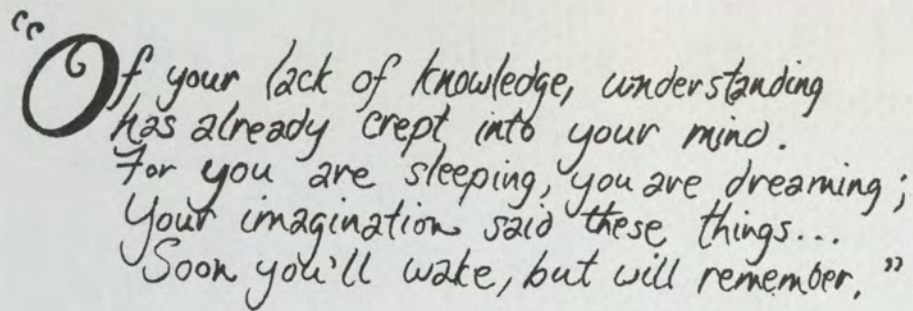 “Of your lack of knowledge, understanding
has already crept into your mind.
For you are sleeping, you are dreaming;
Your imagination said these things...
Soon you'll wake, but will remember.”